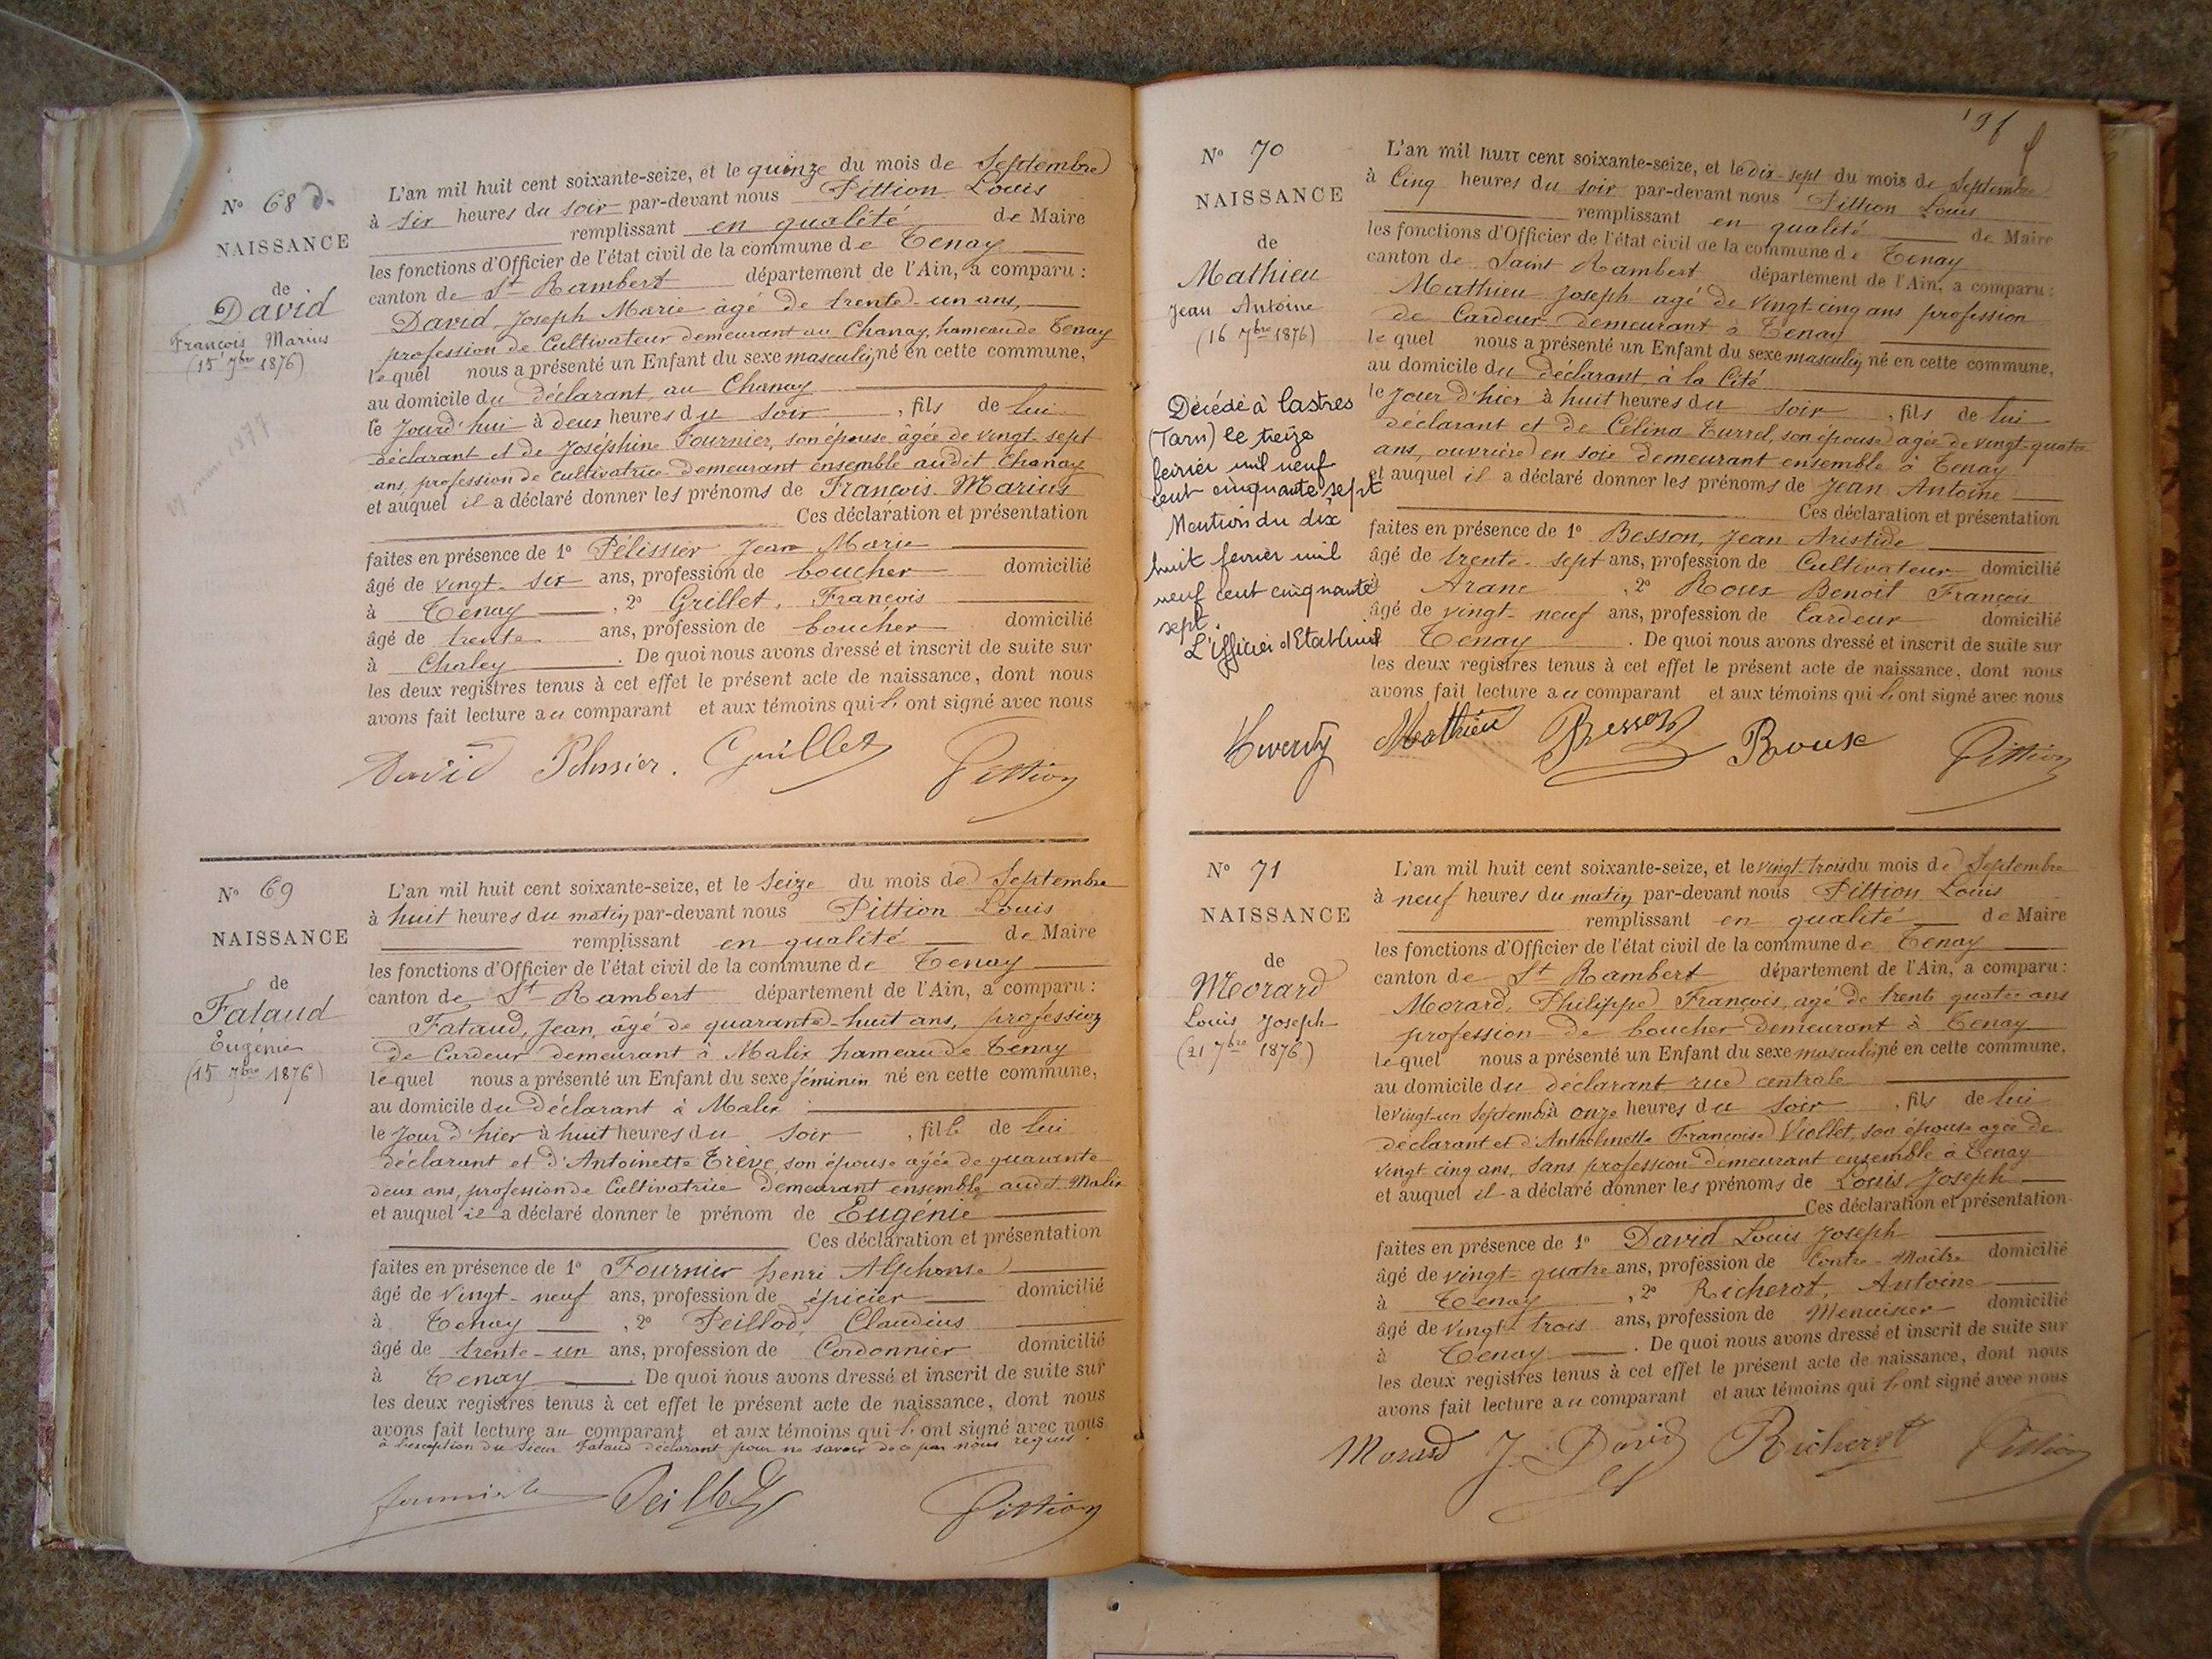 N° 68 d.
NAISSANCE
de
David
François Marius
(15 7bre 1876)
L'an mil huit cent soixante-seize, et le quinze du mois de Septembre
à six heures du soir par-devant nous Pittion Louis
remplissant en qualité de Maire
les fonctions d'Officier de l'état civil de la commune de Tenay
canton de St Rambert département de l'Ain, a comparu :
David, Joseph Marie âgé de trente-un ans,
profession de Cultivateur demeurant au Chanay, hameau de Tenay
lequel nous a présenté un Enfant du sexe masculin né en cette commune,
au domicile du déclarant, au Chanay
le jourd'hui à deux heures du soir, fils de lui
déclarant et de Joséphine Fournier, son épouse âgée de vingt-sept
ans, profession de cultivatrice demeurant ensemble audit Chanay
et auquel il a déclaré donner les prénoms de François Marius
Ces déclaration et présentation
faites en présence de 1° Pélissier Jean Marie
âgé de vingt-six ans, profession de boucher domicilié
à Tenay, 2° Grillet, François
âgé de trente ans, profession de boucher domicilié
à Chaley. De quoi nous avons dressé et inscrit de suite sur
les deux registres tenus à cet effet le présent acte de naissance, dont nous
avons fait lecture au comparant et aux témoins qui l'ont signé avec nous
David Pelissier. Grillet Pittion
N° 69
NAISSANCE
de
Fataud
Eugénie
(15 7bre 1876)
L'an mil huit cent soixante-seize, et le seize du mois de Septembre
à huit heures du matin par-devant nous Pittion Louis
remplissant en qualité de Maire
les fonctions d'Officier de l'état civil de la commune de Tenay
canton de St Rambert département de l'Ain, a comparu :
Fataud, Jean, âgé de quarante-huit ans, profession
de Cardeur demeurant à Malix hameau de Tenay
lequel nous a présenté un Enfant du sexe féminin né en cette commune,
au domicile du déclarant à Malix
le jour d'hier à huit heures du soir, fille de lui
déclarant et d'Antoinette Trève, son épouse âgée de quarante
deux ans, profession de Cultivatrice demeurant ensemble audit Malix
et auquel il a déclaré donner le prénom de Eugénie
Ces déclaration et présentation
faites en présence de 1° Fournier henri Alphonse
âgé de vingt-neuf ans, profession de épicier domicilié
à Tenay, 2° Peillod, Claudius
âgé de trente-un ans, profession de Cordonnier domicilié
à Tenay. De quoi nous avons dressé et inscrit de suite sur
les deux registres tenus à cet effet le présent acte de naissance, dont nous
avons fait lecture au comparant et aux témoins qui l'ont signé avec nous
à l'exception du sieur Fataud déclarant pour ne savoir de ce par nous requis.
Peillod Pittion
N° 70
NAISSANCE
de
Mathieu
Jean Antoine
(16 7bre 1876)
Décédé à Castres
(Tarn) le treize
février mil neuf
cent cinquante sept
Mention du dix
huit février mil
neuf cent cinquante
sept.
L'officier d'Etat Civil
L'an mil huit cent soixante-seize, et le dix-sept du mois de Septembre
à Cinq heures du soir par-devant nous Pittion Louis
remplissant en qualité de Maire
les fonctions d'Officier de l'état civil de la commune de Tenay
canton de Saint Rambert département de l'Ain, a comparu :
Mathieu Joseph agé de vingt-cinq ans profession
de Cardeur demeurant à Tenay
lequel nous a présenté un Enfant du sexe masculin né en cette commune,
au domicile du déclarant, à la Cité
le jour d'hier à huit heures du soir, fils de lui
déclarant et de Célina Turrel, son épouse agée de vingt-quatre
ans, ouvrière en soie demeurant ensemble à Tenay
et auquel il a déclaré donner les prénoms de Jean Antoine
Ces déclaration et présentation
faites en présence de 1° Besson, Jean Aristide
âgé de trente-sept ans, profession de Cultivateur domicilié
à Arane, 2° Roux Benoit François
âgé de vingt-neuf ans, profession de Cardeur domicilié
Tenay. De quoi nous avons dressé et inscrit de suite sur
les deux registres tenus à cet effet le présent acte de naissance, dont nous
avons fait lecture au comparant et aux témoins qui l'ont signé avec nous
Mathieu Besson Roux Pittion
N° 71
NAISSANCE
de
Morard
Louis Joseph
(21 7bre 1876)
L'an mil huit cent soixante-seize, et le vingt-trois du mois de Septembre
à neuf heures du matin par-devant nous Pittion Louis
remplissant en qualité de Maire
les fonctions d'Officier de l'état civil de la commune de Tenay
canton de St Rambert département de l'Ain, a comparu :
Morard, Philippe François, agé de trente quatre ans
profession de boucher demeurant à Tenay
lequel nous a présenté un Enfant du sexe masculin né en cette commune,
au domicile du déclarant rue centrale
le vingt-un septembre à onze heures du soir, fils de lui
déclarant et d'Anthelmette Françoise Viollet, son épouse agée de
vingt cinq ans, sans profession demeurant ensemble à Tenay
et auquel il a déclaré donner les prénoms de Louis Joseph
Ces déclaration et présentation
faites en présence de 1° David Louis Joseph
âgé de vingt-quatre ans, profession de Contre-Maître domicilié
à Tenay, 2° Richerot, Antoine
âgé de vingt-trois ans, profession de Menuisier domicilié
à Tenay. De quoi nous avons dressé et inscrit de suite sur
les deux registres tenus à cet effet le présent acte de naissance, dont nous
avons fait lecture au comparant et aux témoins qui l'ont signé avec nous
Morard J. David Richerot Pittion